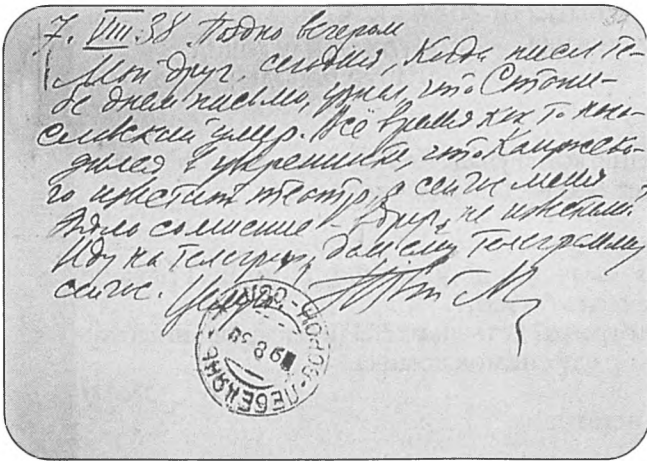 7. VIII. 38. Поздно вечером
Мой друг. сегодня, когда писал те-
бе днем письмо, узнал, что Стани-
славский умер. Всё время как то
в, что
го известит театр, а сейчас меня
взяло сомнение – вдруг не известили.
Иду на телеграф, дам ему телеграмму
сейчас. Целую
ЛЕБЕДЯНЬ
9 8 38